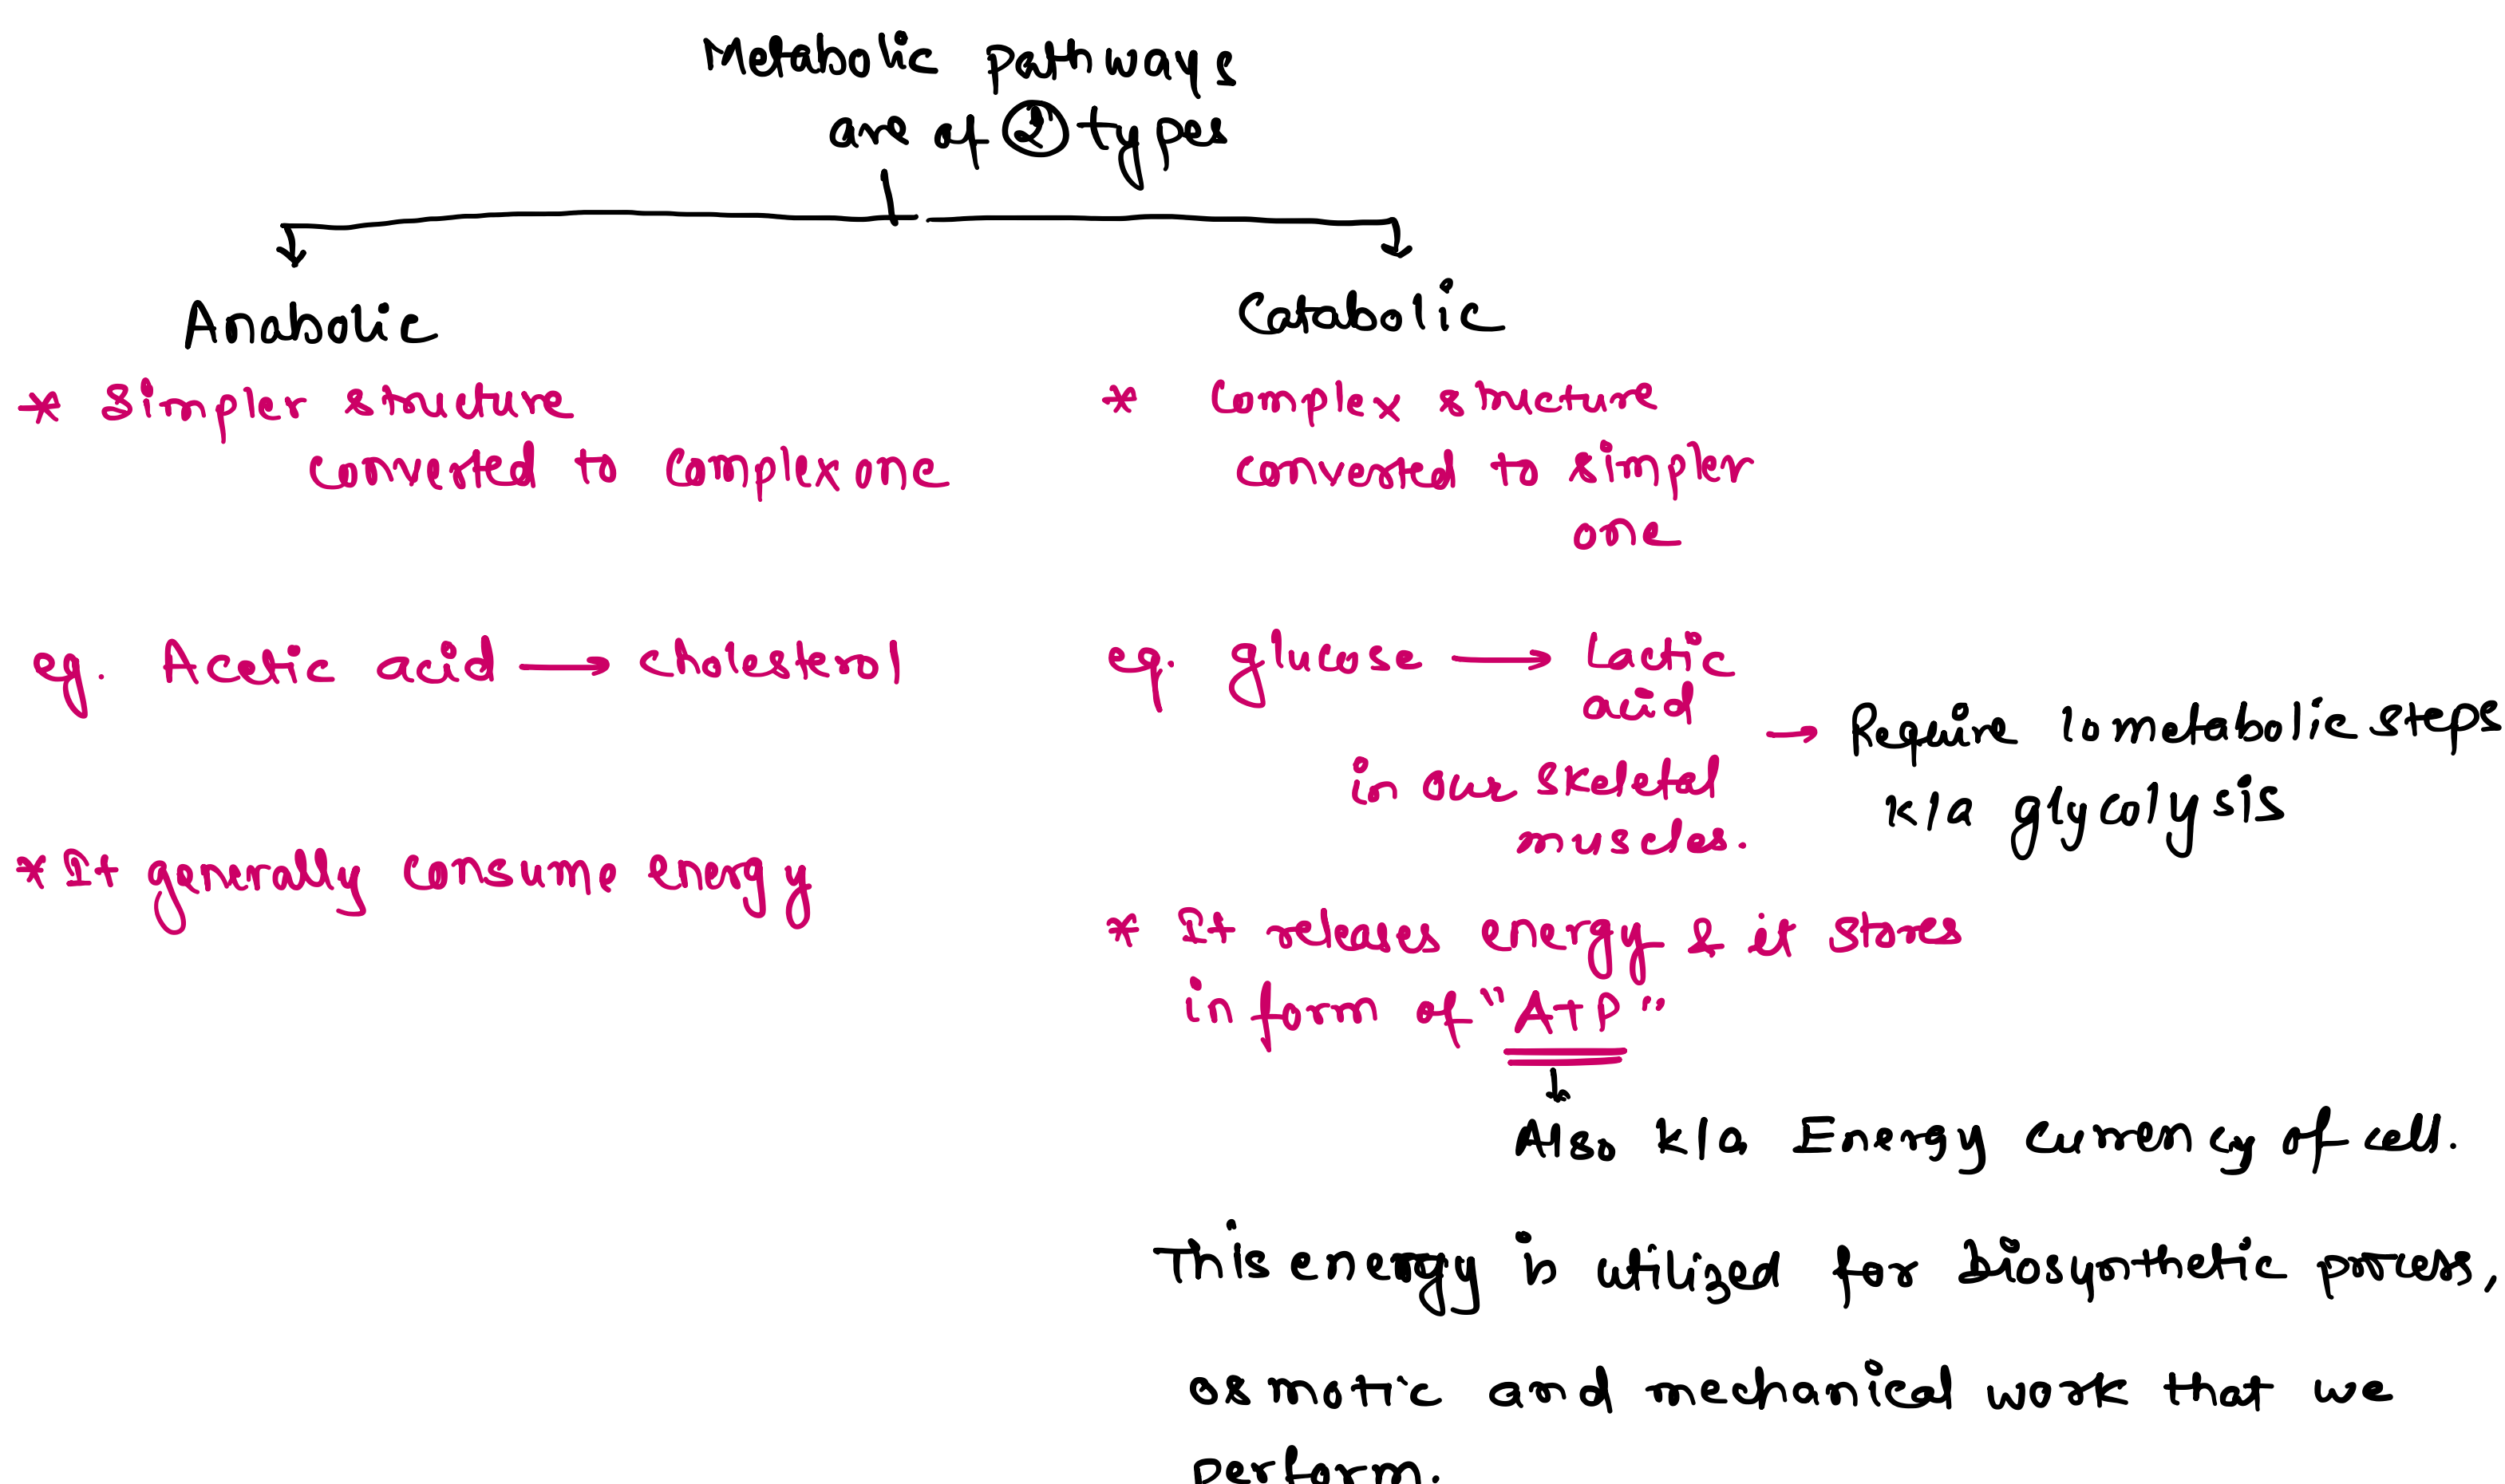 Metabolic pathways
are of 2 types
Anabolic
* Simpler structure
converted to complex one
eg. Acetic acid → cholesterol
* It generally consume energy
Catabolic
* Complex structure
converted to simpler
one
eg. glucose → Lactic
acid
in our skeletal
muscles.
→ Require 10 metabolic steps
k/a glycolysis
* It releases energy & it stores
in form of "ATP"
↓
Also k/a Energy currency of cell.
This energy is utilized for biosynthetic process,
osmotic and mechanical work that we
perform.